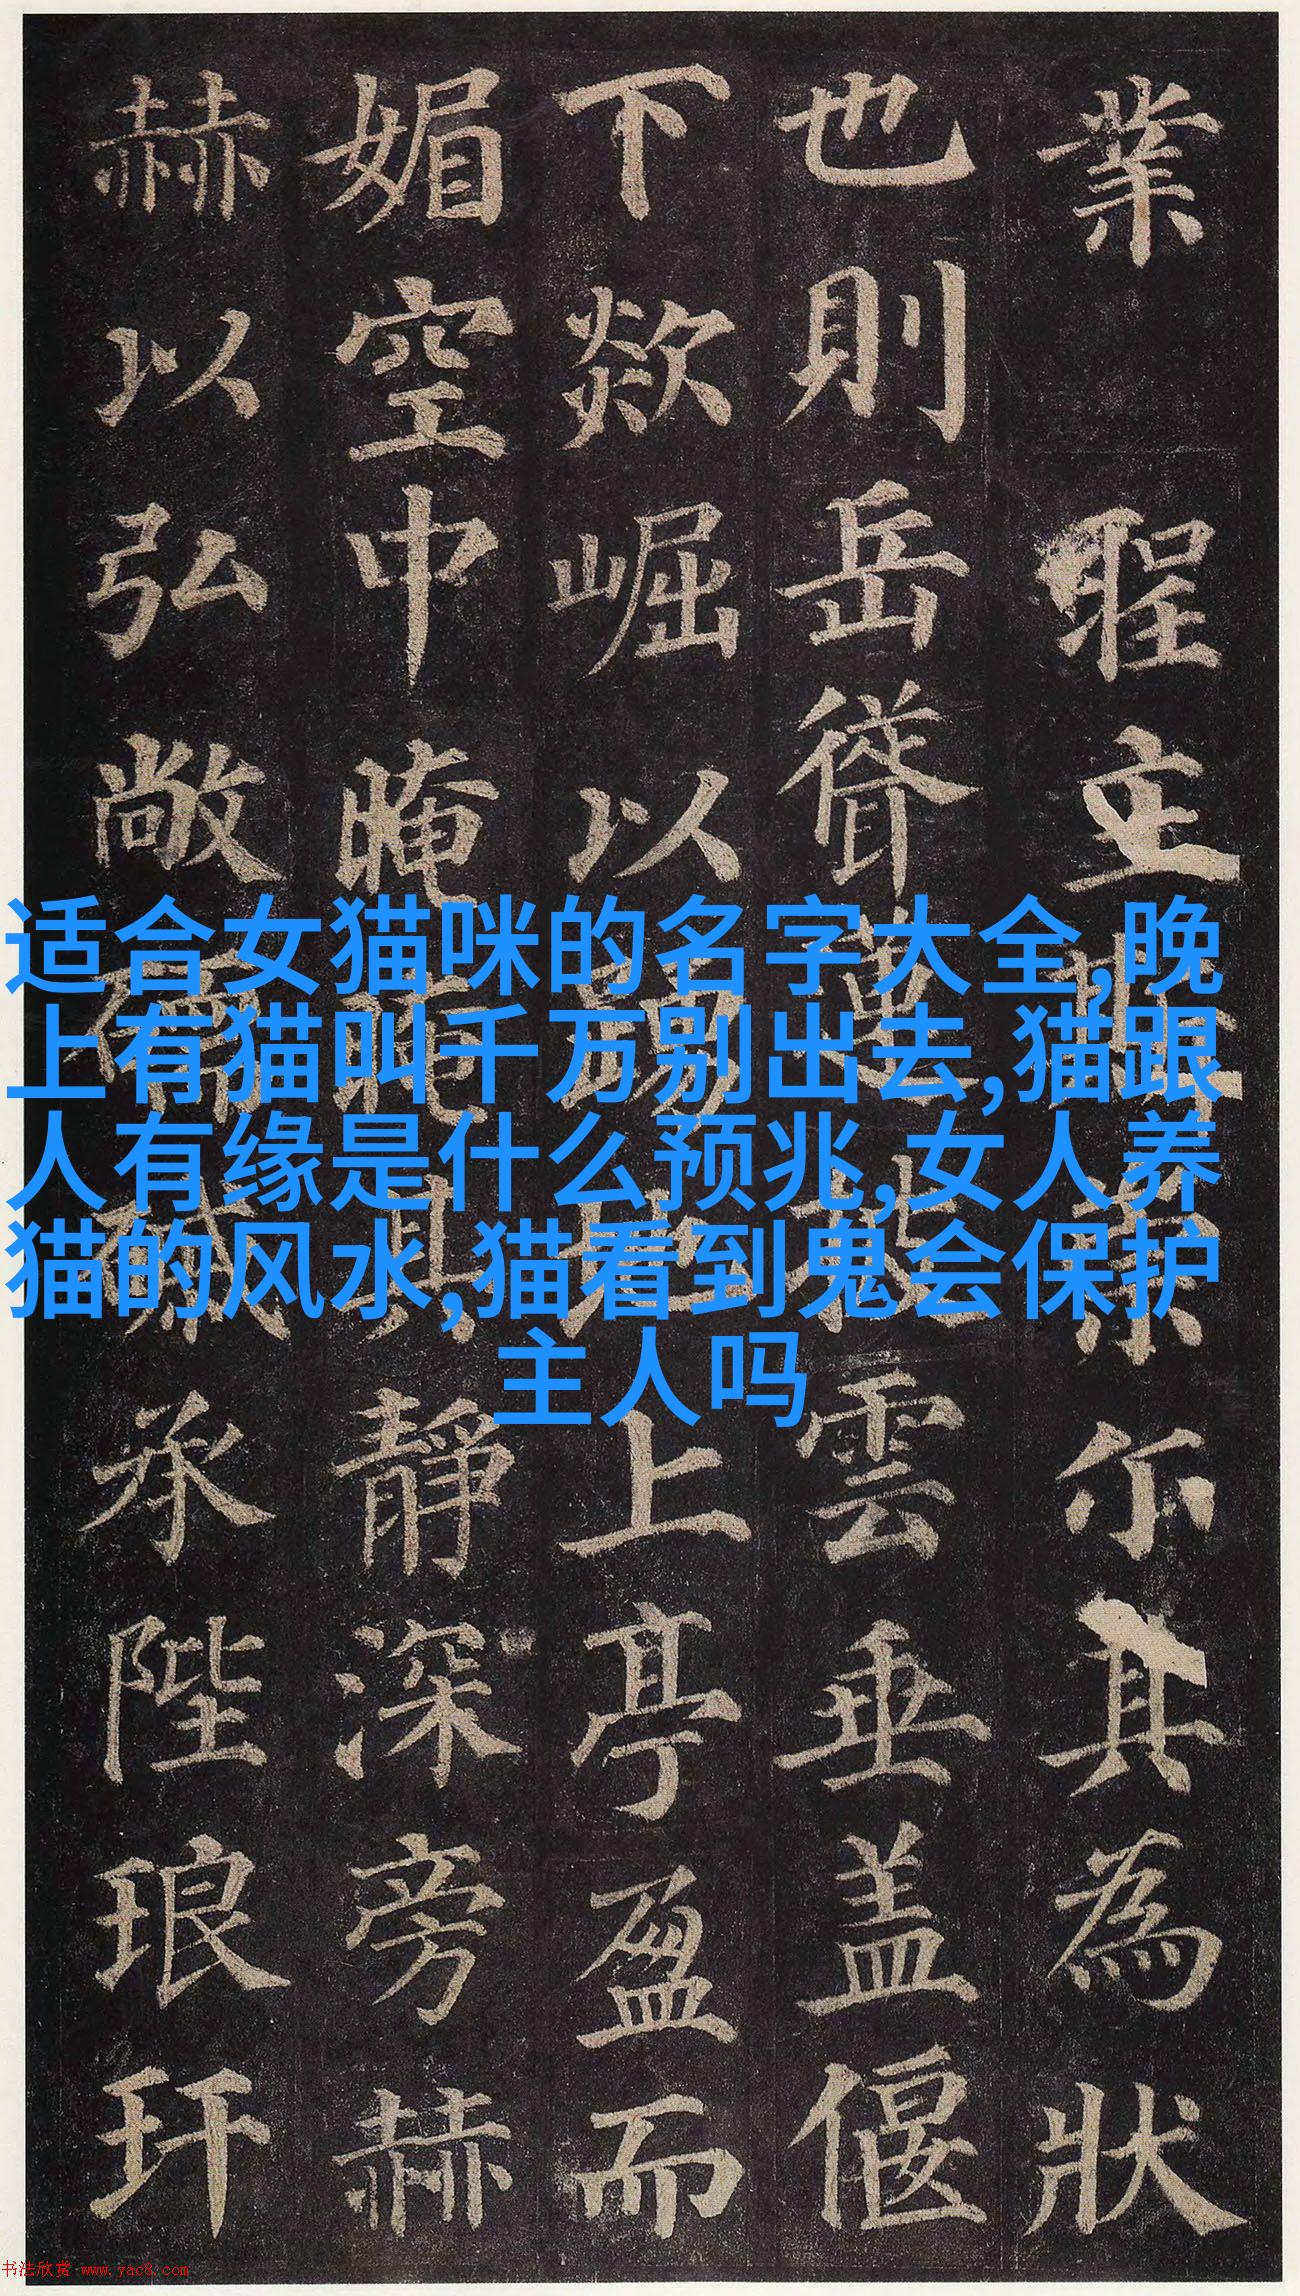 業立尓其為狀
也則岳聳雲垂盖偃
下欻崛以上亭盈而
媚空中晻其靜深旁赫
赫以弘敞承陛琅玕
适合女猫咪的名字大全,晚
上有猫叫千万别出去,猫跟
人有缘是什么预兆,女人养
猫的风水,猫看到鬼会保护
主人吗
书法欣赏 www.yac8.com